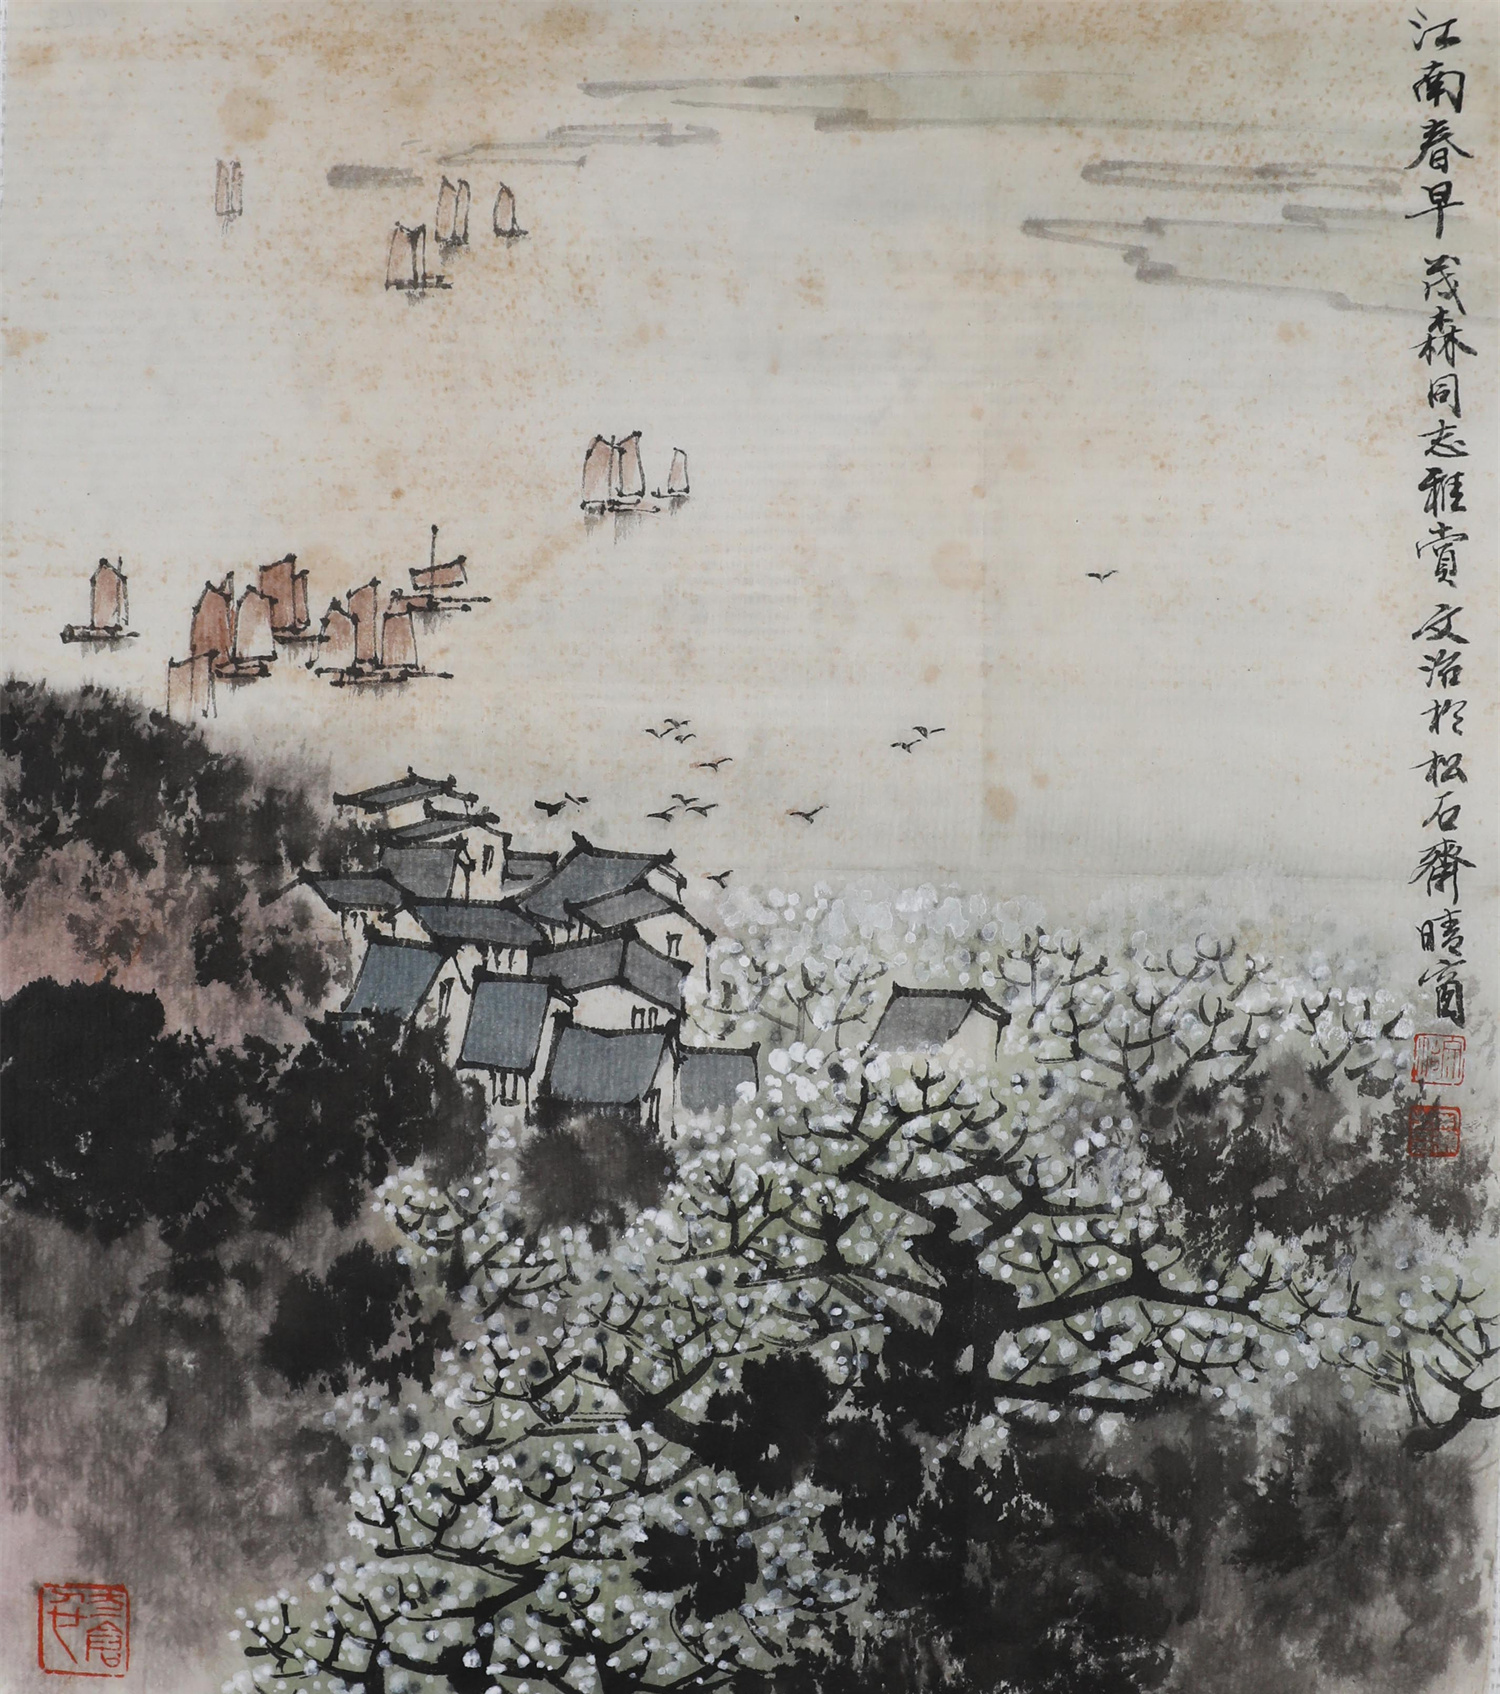 江南春早 茂森同志雅赏 文治于松石斋晴窗